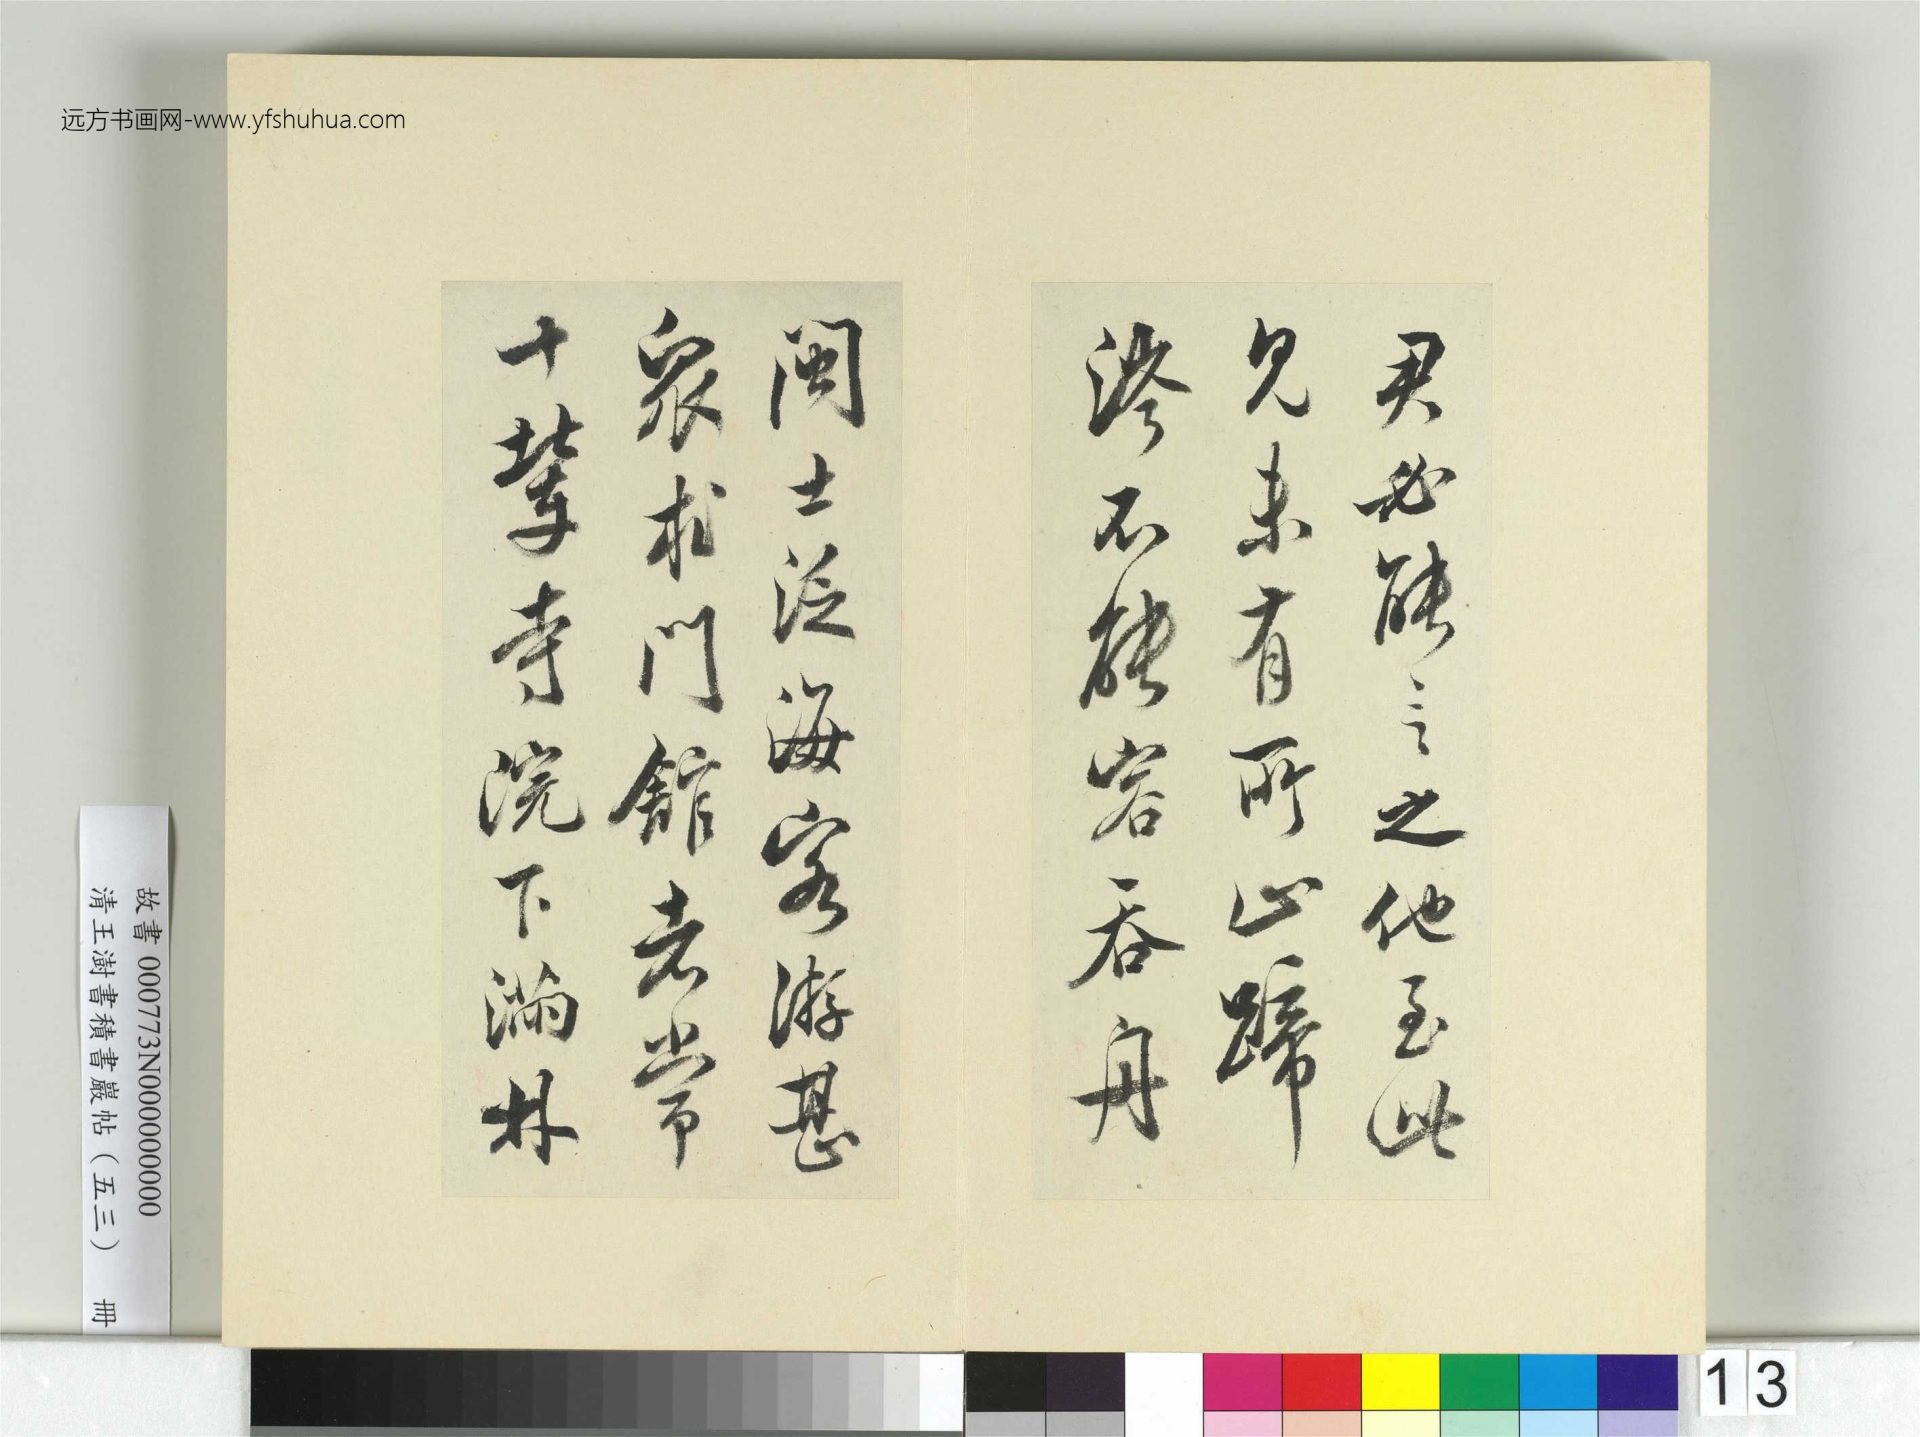 远方书画网-www.yfshuhua.com
君必能言之他至此
見未有所止蹄
涔不能容吞舟
閩士泛海客游甚
衆材門館老常
十輩寺浣下滿林
故書 000773N000000000
清王澍書積書巖帖（五三） 冊
13